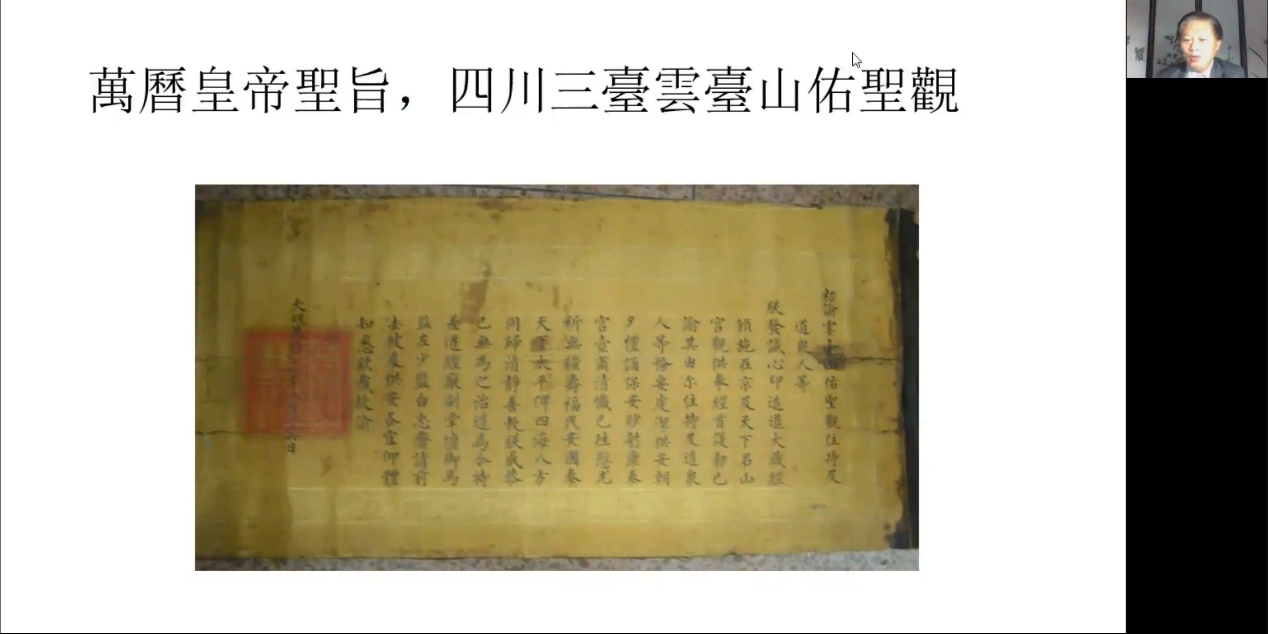 萬曆皇帝聖旨，四川三臺雲臺山佑聖觀
諭雲臺山佑聖觀住持及
道衆人等
朕發誠心印造道大藏經
頒施在京及天下名山
宮觀供奉經首護勑已
諭其由尔住持及道衆
人等務要虔潔供安朝
夕禮誦保安眇躬康泰
宮壼肅清懺已往愆尤
祈無疆壽福民安國泰
天下太平俾四海八方
同歸清静善教朕成恭
己無為之治道焉今特
差道經厰副掌壇御馬
監左少監白忠齎請前
去彼處供安各宜仰體
知悉欽哉故諭
大明萬 日